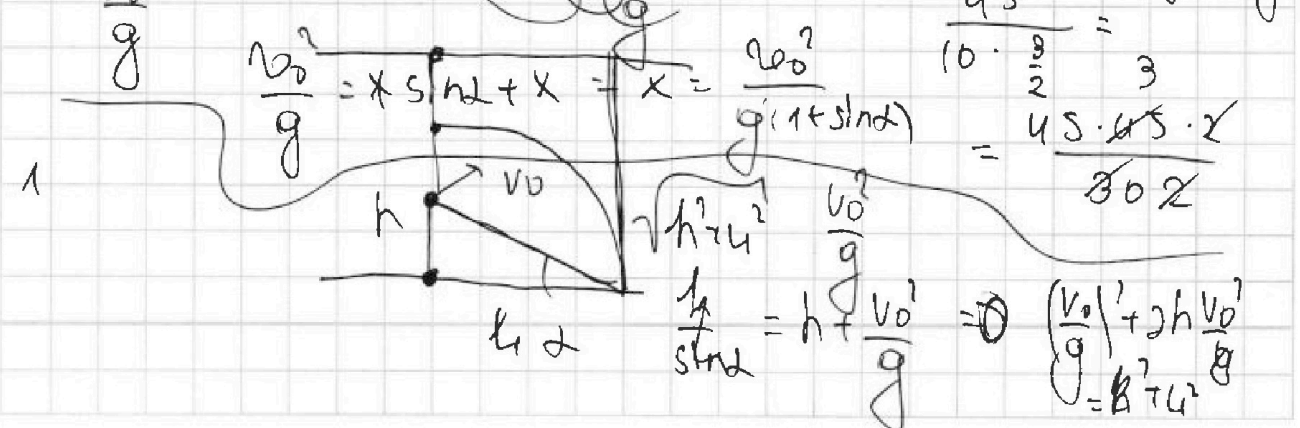 g
v₀²/g = x sinα + x = x = v₀²/(g(1+sinα))
10 · 3/2 =
3
= 45 · 45 · 2 / 30 2
1
v₀
h
√(h²+4²)
v₀²/g
4 α
h/sinα = h + v₀²/g => (v₀²/g)² + 2h v₀²/g
= h² + 4²